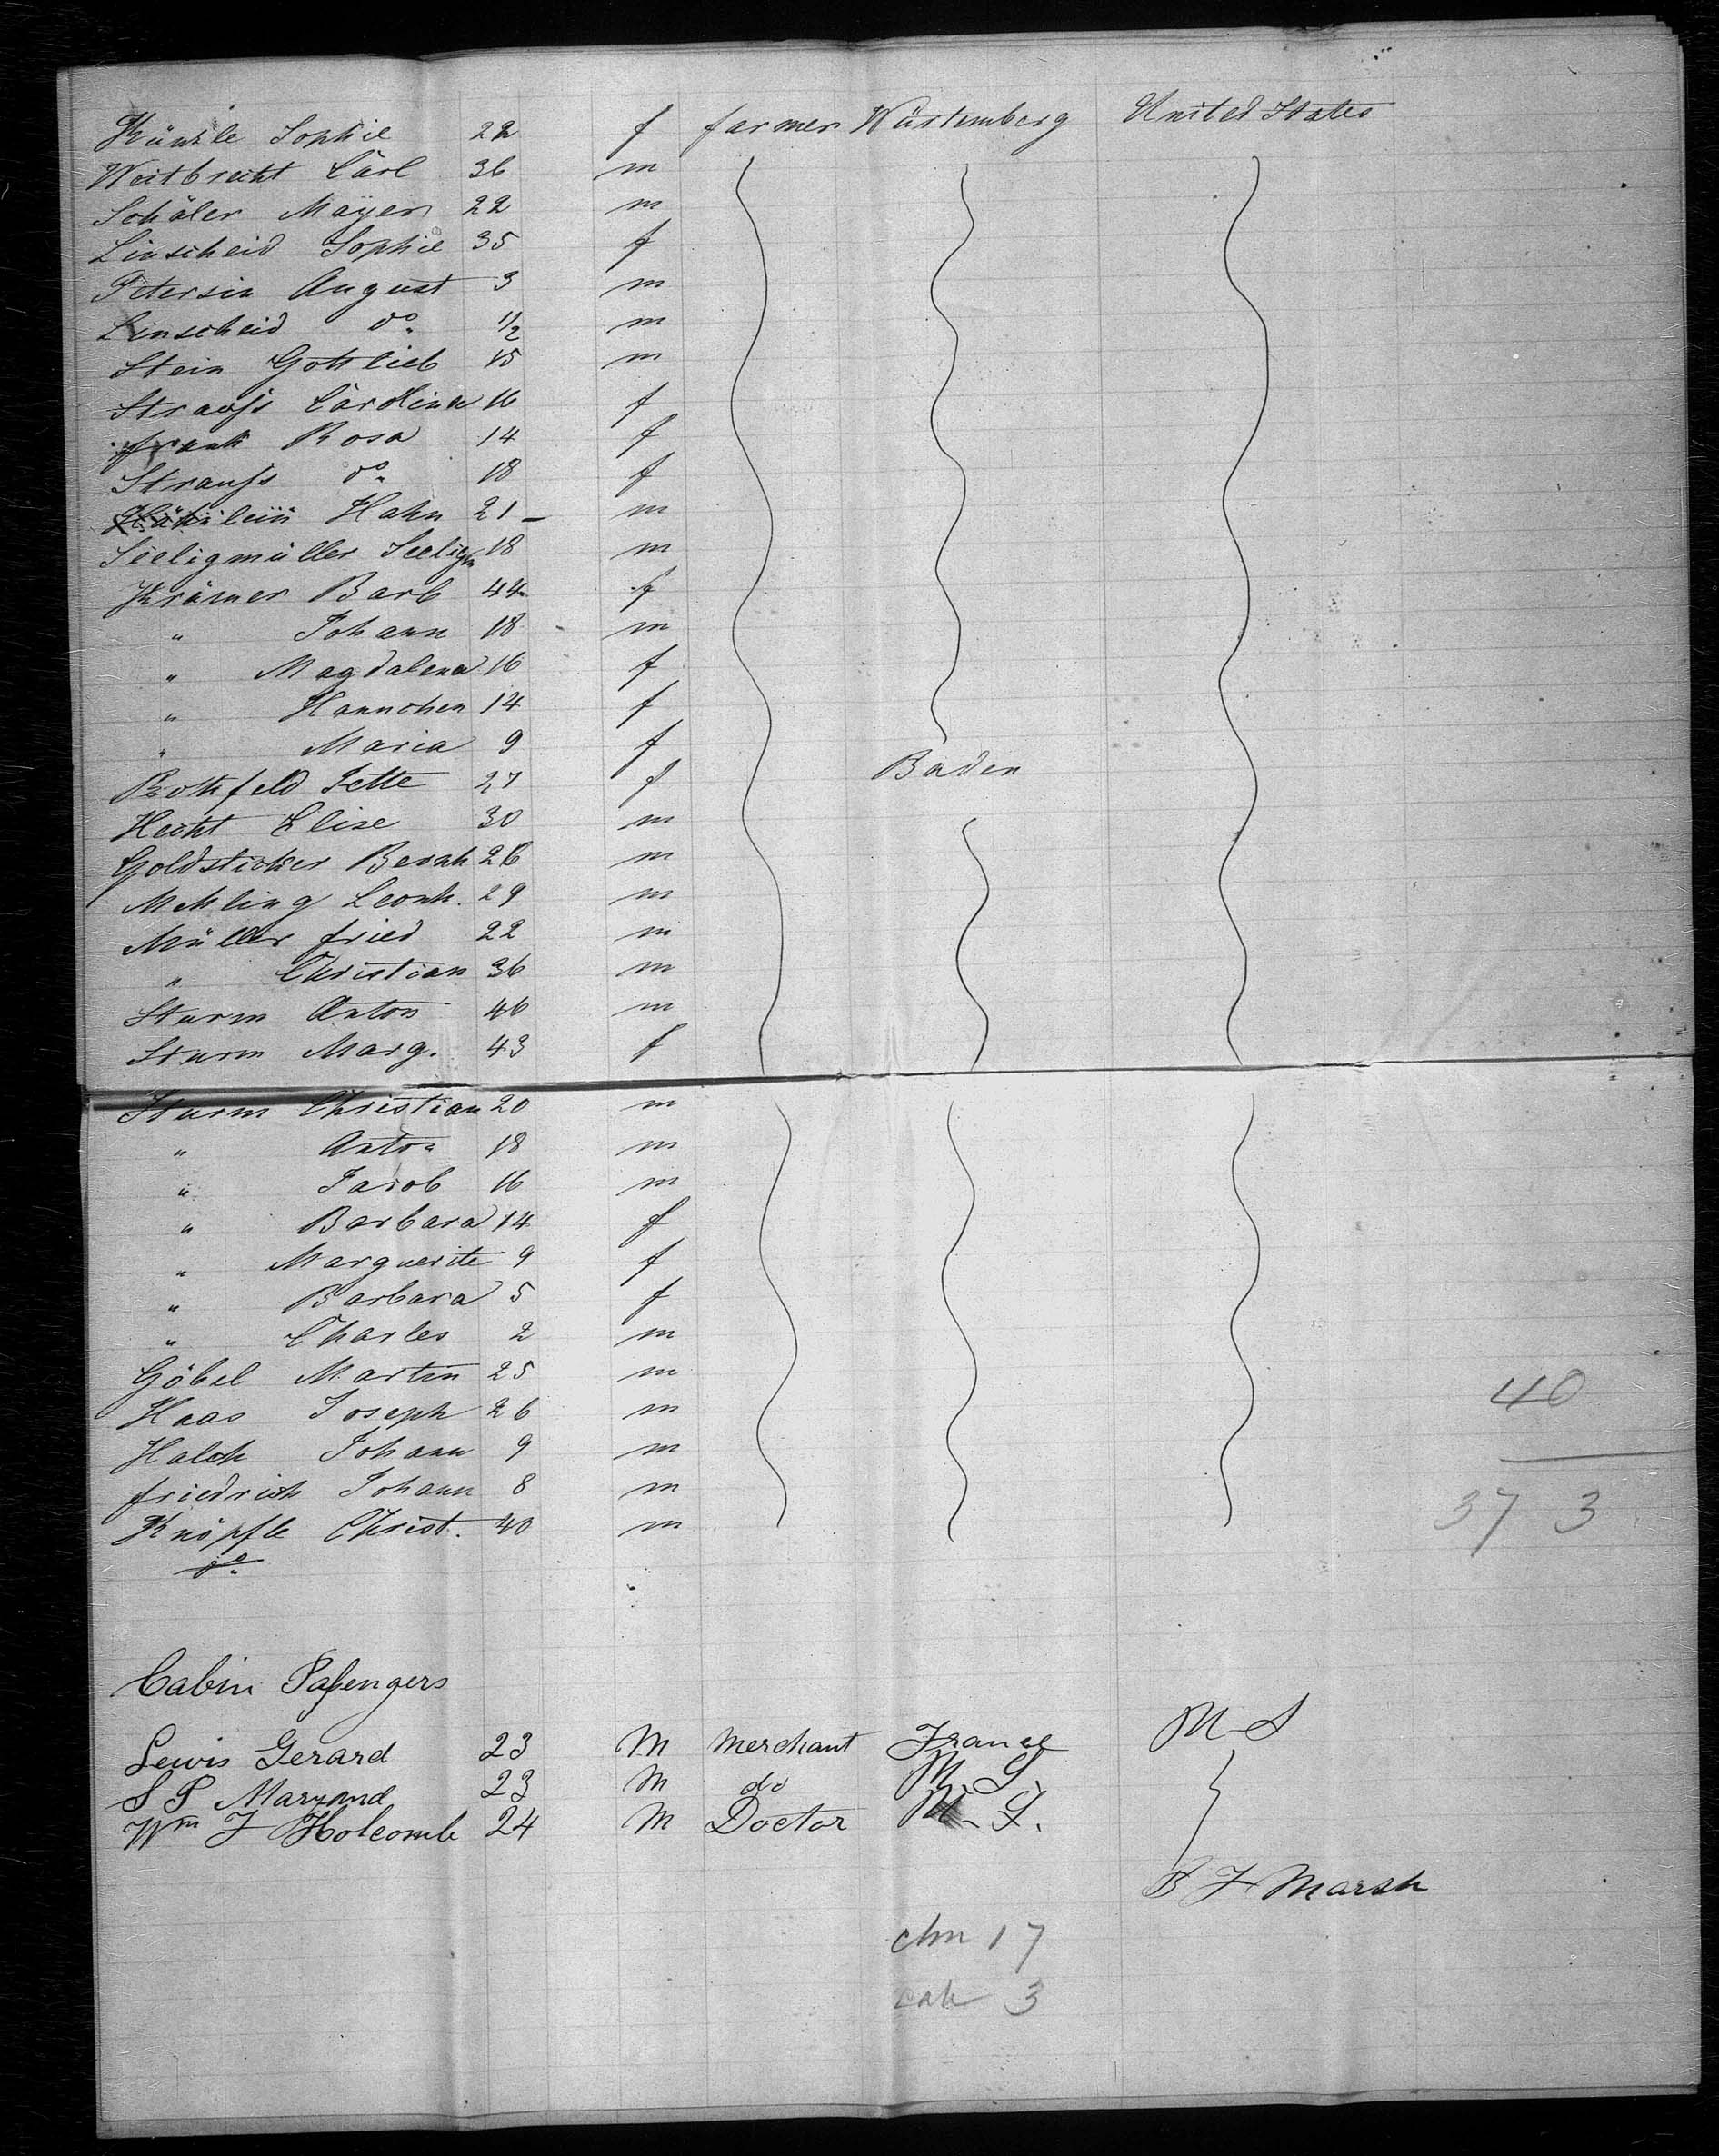 Künzle Sophie 22 f farmer Würtemberg United States
Weitbrecht Carl 36 m
Schäler Mayer 22 m
Linscheid Sophie 35 f
Petersin August 3 m
Linscheid do. 1/2 m
Stein Gottlieb 15 m
Strauss Carolina 16 f
Frank Rosa 14 f
Strauss do. 18 f
Hahn 21 - m
Seeligmüller 18 m
Krämer Barb 44 f
" Johann 18 m
" Magdalena 16 f
" Hannchen 14 f
" Maria 9 f
Rothfeld Jette 27 f Baden
Hecht Elise 30 m
Goldsticker 26 m
Mehling Leonh. 29 m
Müller fried 22 m
" Christian 36 m
Sturm Anton 46 m
Sturm Marg. 43 f
Sturm Christian 20 m
" Anton 18 m
" Jacob 16 m
" Barbara 14 f
" Marguerite 9 f
" Barbara 5 f
" Charles 2 m
Göbel Martin 25 m
Haas Joseph 26 m
40
Halch Johann 9 m
friedrich Johann 8 m
37 3
Knöpfle Christ. 40 m
do.
Cabin Passengers
Lewis Gerard 23 M Merchant France U S
S P 23 M do U S.
Wm F Holcomb 24 M Doctor U. S.
B F Marsh
chn 17
cab 3